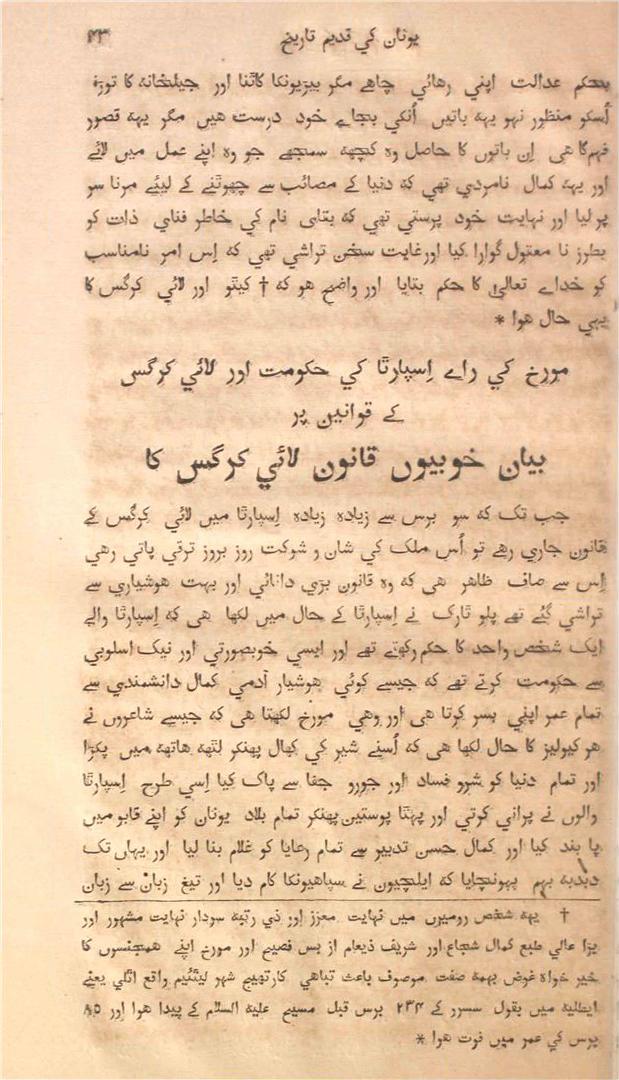 یونان کي قدیم تاریخ ۴۳
بحکم عدالت اپني رهائي چاهے مگر بیڑیونکا کاٹنا اور جیلخانہ کا توڑنا
اُسکو منظور نہو یہہ باتیں اُنکي بجاے خود درست هیں مگر یہہ قصور
فہم کا هی اِن باتوں کا حاصل وہ کچھہ سمجھے جو وہ اپنے عمل میں لائے
اور یہہ کمال نامردي تھي کہ دنیا کے مصائب سے چھوٹنے کے لیئے مرنا سر
پر لیا اور نہایت خود پرستي تھي کہ بقاي نام کي خاطر فناي ذات کو
بطرز نا معقول گوارا کیا اور غایت سخن تراشي تھي کہ اِس امر نامناسب
کو خداے تعالیٰ کا حکم بتایا اور واضح هو کہ † کیٹو اور لائي کرگس کا
یہي حال هوا *
مورخ کي راے اِسپارٹا کي حکومت اور لائي کرگس
کے قوانین پر
بیان خوبیوں قانون لائي کرگس کا
جب تک کہ سو برس سے زیادہ زیادہ اِسپارٹا میں لائي کرگس کے
قانون جاري رهے تو اُس ملک کي شان و شوکت روز بروز ترقي پاتي رهي
اِس سے صاف ظاهر هی کہ وہ قانون بڑي دانائي اور بہت هوشیاري سے
تراشي گئے تھے پلو ٹارک نے اِسپارٹا کے حال میں لکھا هی کہ اِسپارٹا والے
ایک شخص واحد کا حکم رکھتے تھے اور ایسي خوبصورتي اور نیک اسلوبي
سے حکومت کرتے تھے کہ جیسے کوئي هوشیار آدمي کمال دانشمندي سے
تمام عمر اپني بسر کرتا هی اور وهي مورخ لکھتا هی کہ جیسے شاعروں نے
هرکیولیز کا حال لکھا هی کہ اُسنے شیر کي کھال پھنکر لٹھہ هاتھہ میں پکڑا
اور تمام دنیا کو شرو فساد اور جورو جفا سے پاک کیا اِسي طرح اِسپارٹا
والوں نے پراني کرتي اور پھٹا پوستین پھنکر تمام بلاد یونان کو اپنے قابو میں
پا بند کیا اور کمال حسن تدبیر سے تمام رعایا کو غلام بنا لیا اور یہاں تک
دبدبہ بہم پہونچایا کہ ایلچیون نے سپاهیونکا کام دیا اور تیغ زبان سے زبان
† یہہ شخص رومیوں میں نہایت معزز اور ذي رتبہ سردار نہایت مشہور اور
بڑا عالي طبع کمال شجاع اور شریف ذیعام از بس فصیح اور مورخ اپنے همجنسوں کا
خیر خواہ غرض بہمہ صفت موصوف باعث تباهي کارتھیج شہر لیٹئیم واقع اٹلي یعنے
ایطالیہ میں بقول سسرو کے ۲۳۴ برس قبل مسیح علیہ السلام کے پیدا هوا اور ۸۵
برس کي عمر میں فوت هوا *